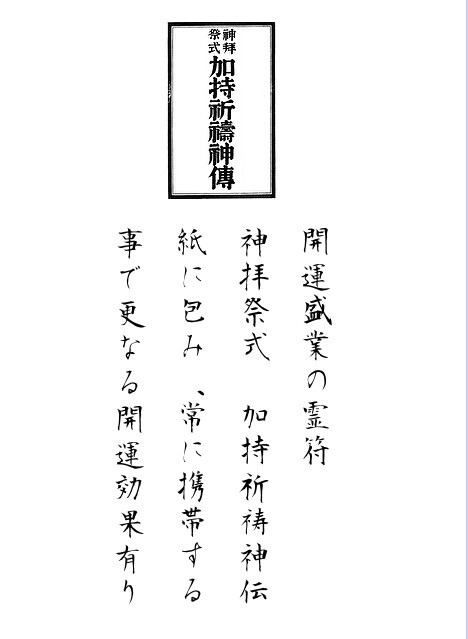 神拜
祭式
加持祈禱神傳
開運盛業の霊符
神拝祭式　加持祈祷神伝
紙に包み、常に携帯する
事で更なる開運効果有り